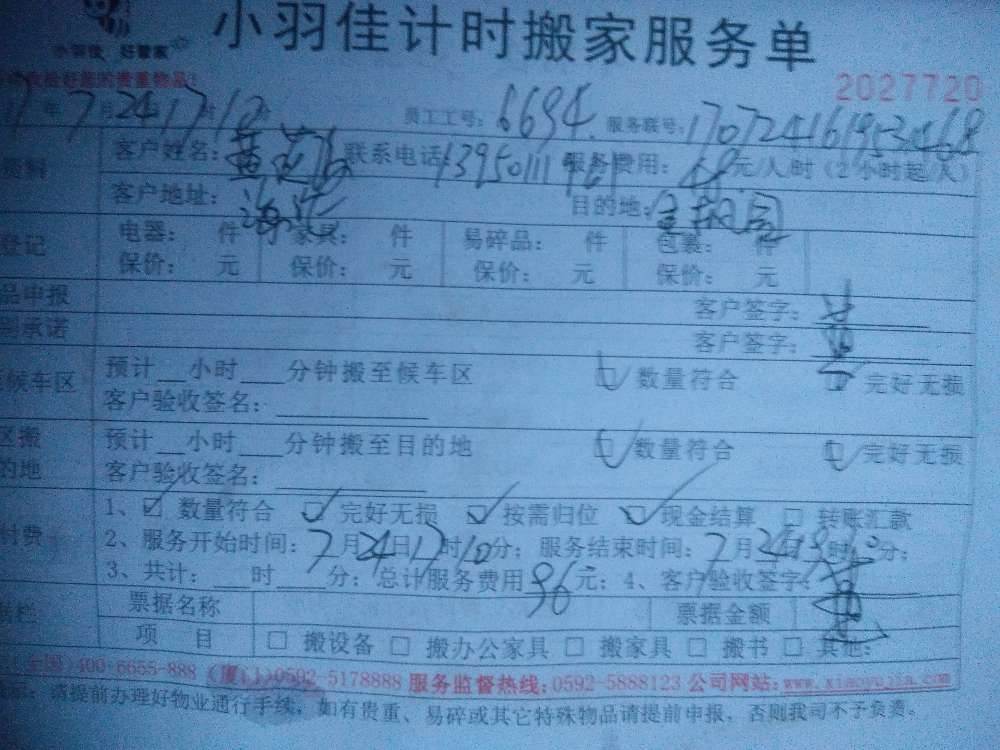 小羽佳计时搬家服务单
小羽佳 好管家
的贵重物品！
2027720
年 7月24 17 10 员工工号：6694 服务联号：170724161953468
资料 客户姓名： 联系电话： 服务费用：48元/人/时（2小时起/人）
客户地址： 目的地：
登记 电器： 件 家具： 件 易碎品： 件 包裹： 件
保价： 元 保价： 元 保价： 元 保价： 元
品申报 客户签字：
承诺 客户签字：
候车区 预计__小时___分钟搬至候车区 数量符合 完好无损
客户验收签名：
区搬 预计__小时___分钟搬至目的地 数量符合 完好无损
的地 客户验收签名：
付费 1、数量符合 完好无损 按需归位 现金结算 □ 转账汇款
2、服务开始时间：7月24日17时10分；服务结束时间：7月24日 时 分；
3、共计：___时____分；总计服务费用96元；4、客户验收签字：
栏 票据名称 票据金额
项 目 □ 搬设备 □ 搬办公家具 □ 搬家具 □ 搬书 □ 其他：
(全国)400-6655-888 (厦门)0592-5178888 服务监督热线：0592-5888123 公司网站：www.xiaoyujia.com
请提前办理好物业通行手续，如有贵重、易碎或其它特殊物品请提前申报，否则我司不予负责。